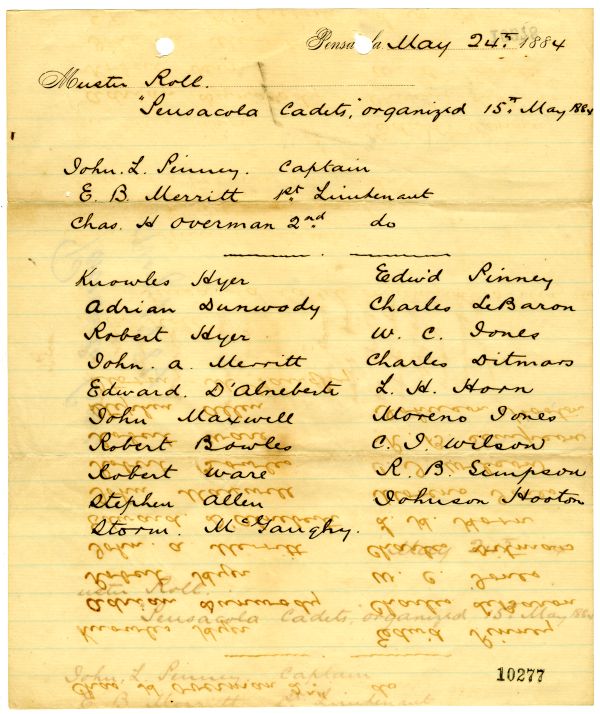 Pensacola May 24th 1884
Muster Roll.
"Pensacola Cadets", organized 15th May 1884
John. L. Pinney. Captain
E. B. Merritt 1st Lieutenant
Chas. H Overman 2nd do
Knowles Hyer Edwd Pinney
Adrian Dunwody Charles LeBaron
Robert Hyer W. C. Jones
John. A. Merritt Charles Ditmars
Edward. D'Alneberte L. H. Horn
John Maxwell Moreno Jones
Robert Bowles C. J. Wilson
Robert Ware R. B. Simpson
Stephen Allen Johnson Hooton
Storm. McGaughy.
10277